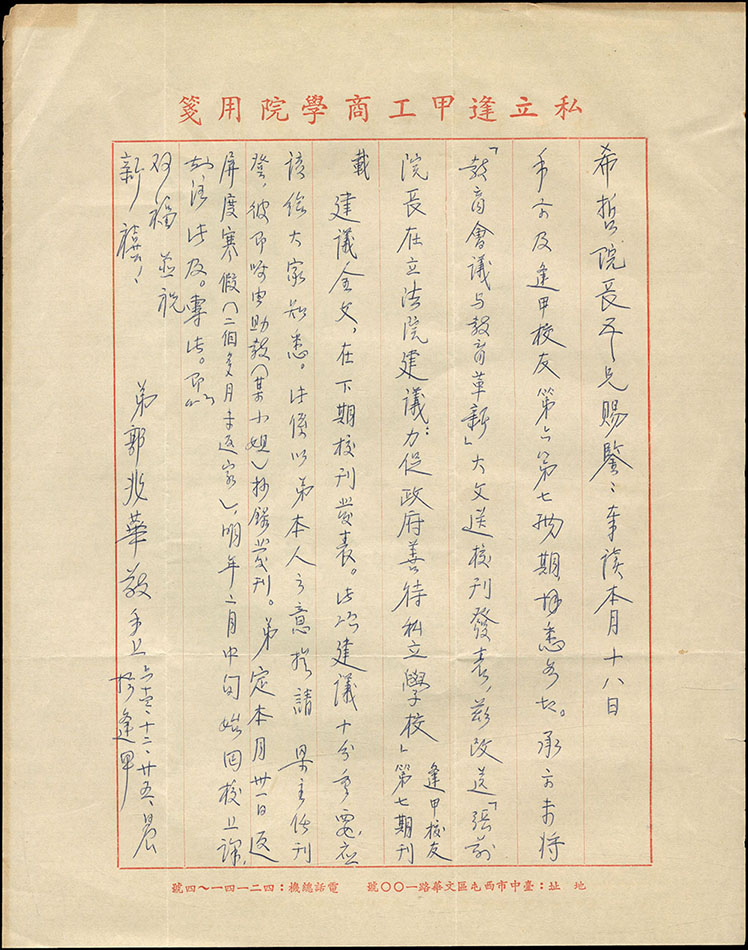 私立逢甲工商學院用箋
希哲院長吾兄賜鑒：奉讀本月十八日
手示及逢甲校友第六第七兩期拜悉各切。承示未將
「教育會議与教育革新」大文送校刊發表，茲改送「張前
院長在立法院建議：力促政府善待私立學校」逢甲校友第七期刊
載 建議全文，在下期校刊發表。此項建議十分重要，应
該給大家知悉。此係以弟本人之意拟請 吳主任刊
登，彼即囑由助教（某小姐）抄錄發刊。弟定本月卅一日返
屏度寒假（二個多月未返家），明年二月中旬始回校上課，
此及。專此。即以
双福 並祝
新禧！
弟郭兆華敬手上 六十一、十二、廿五、日晨
於逢甲
地址：臺中市西屯區文華路一〇〇號 電話總機：四二一四一～四號